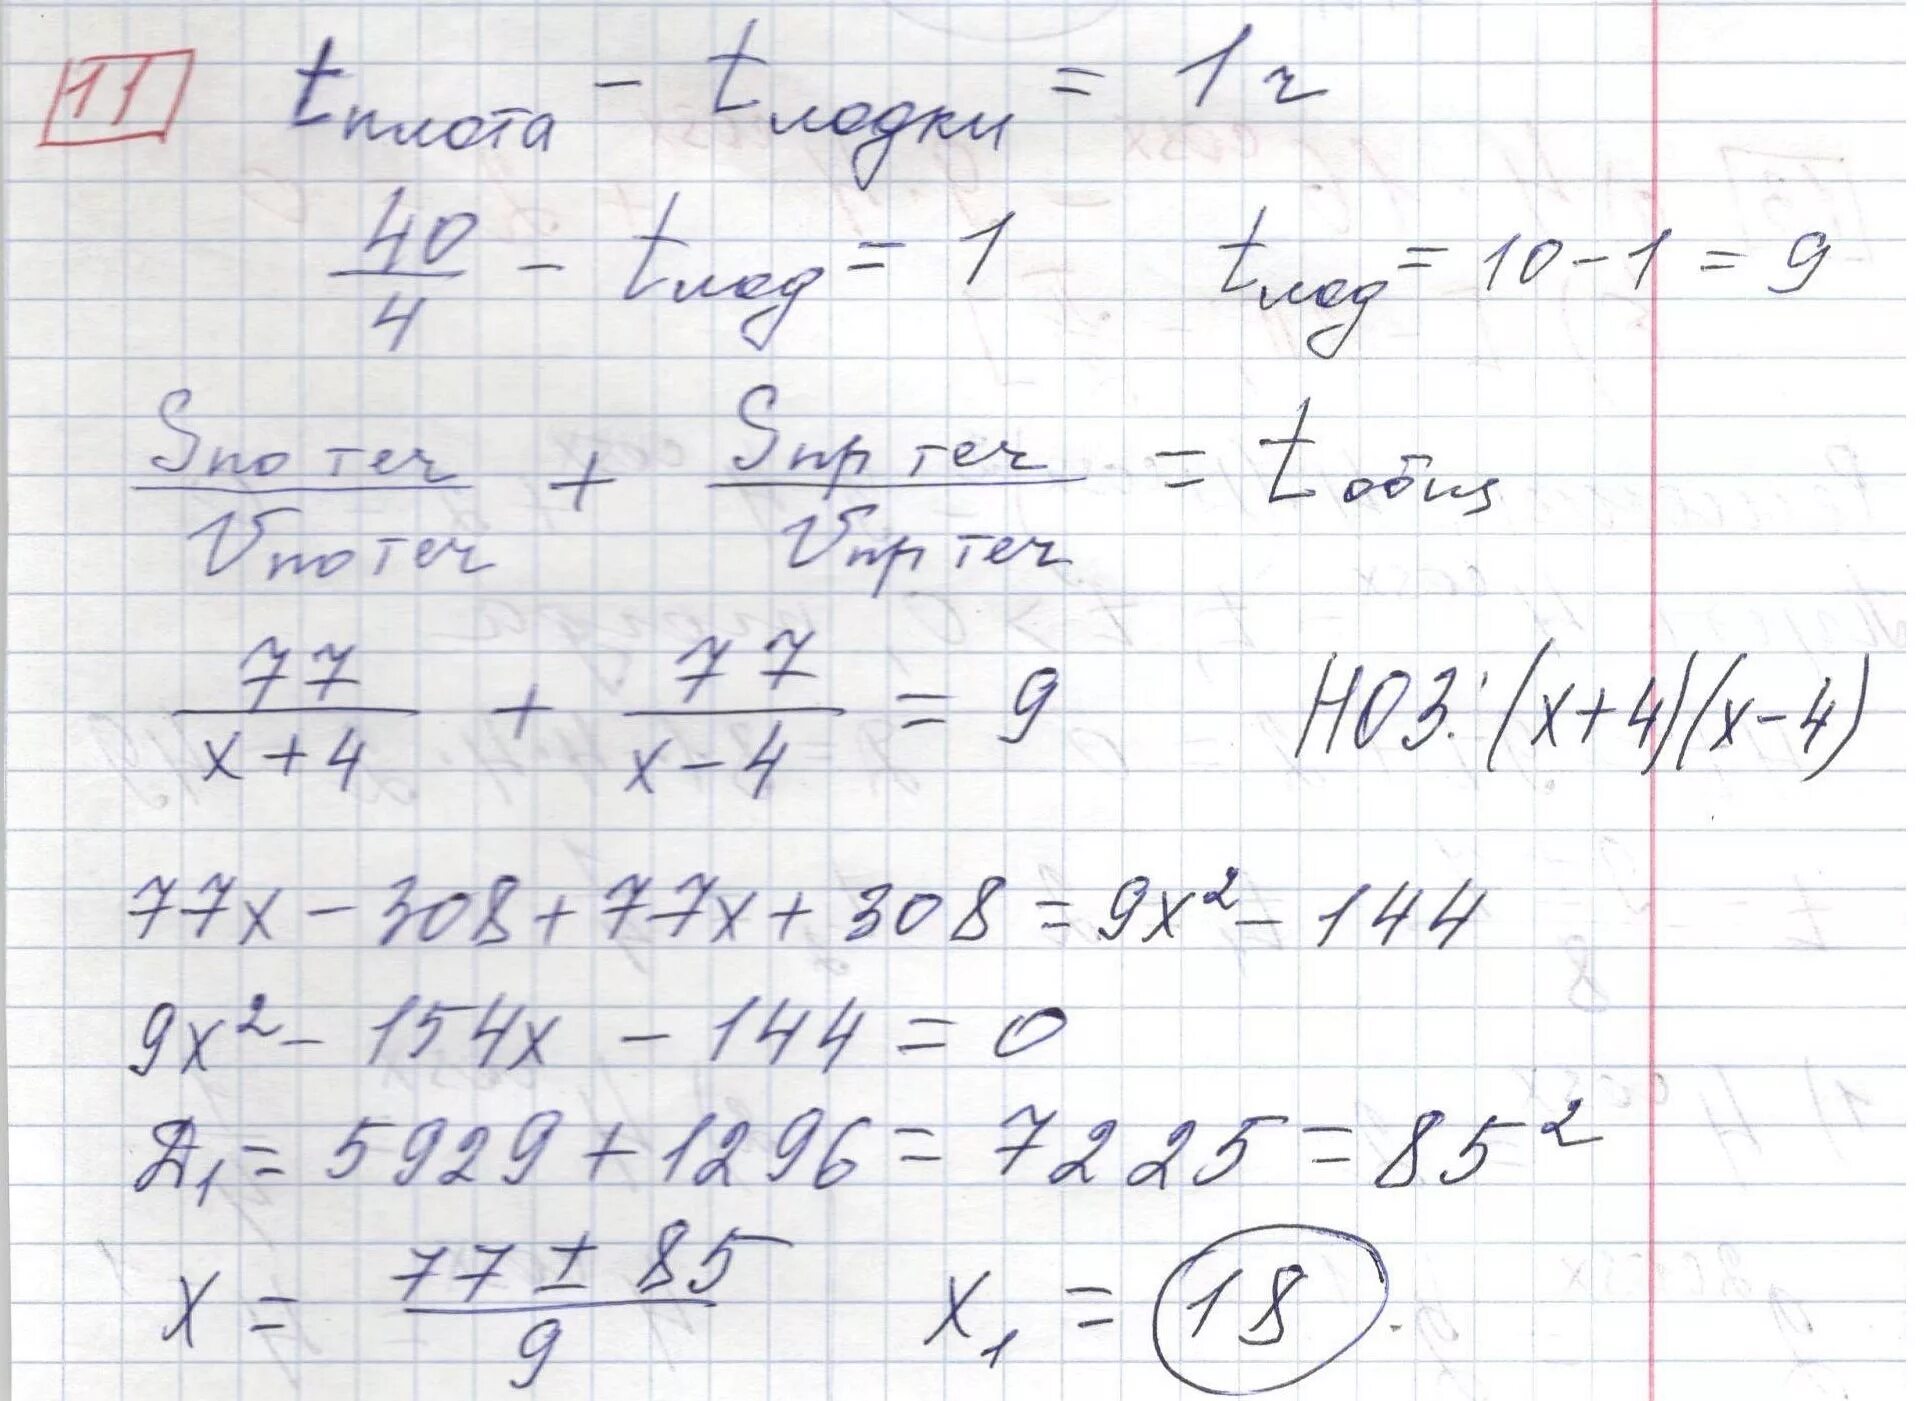 11 tплота - tлодки = 1ч
40/4 - tлод = 1 tлод = 10 - 1 = 9
Sпо теч/Vпо теч + Sпр теч/Vпр теч = tобщ
77/x+4 + 77/x-4 = 9 НОЗ: (x+4)(x-4)
77x - 308 + 77x + 308 = 9x² - 144
9x² - 154x - 144 = 0
Д₁ = 5929 + 1296 = 7225 = 85²
x = 77 ± 85/9 x₁ = 18